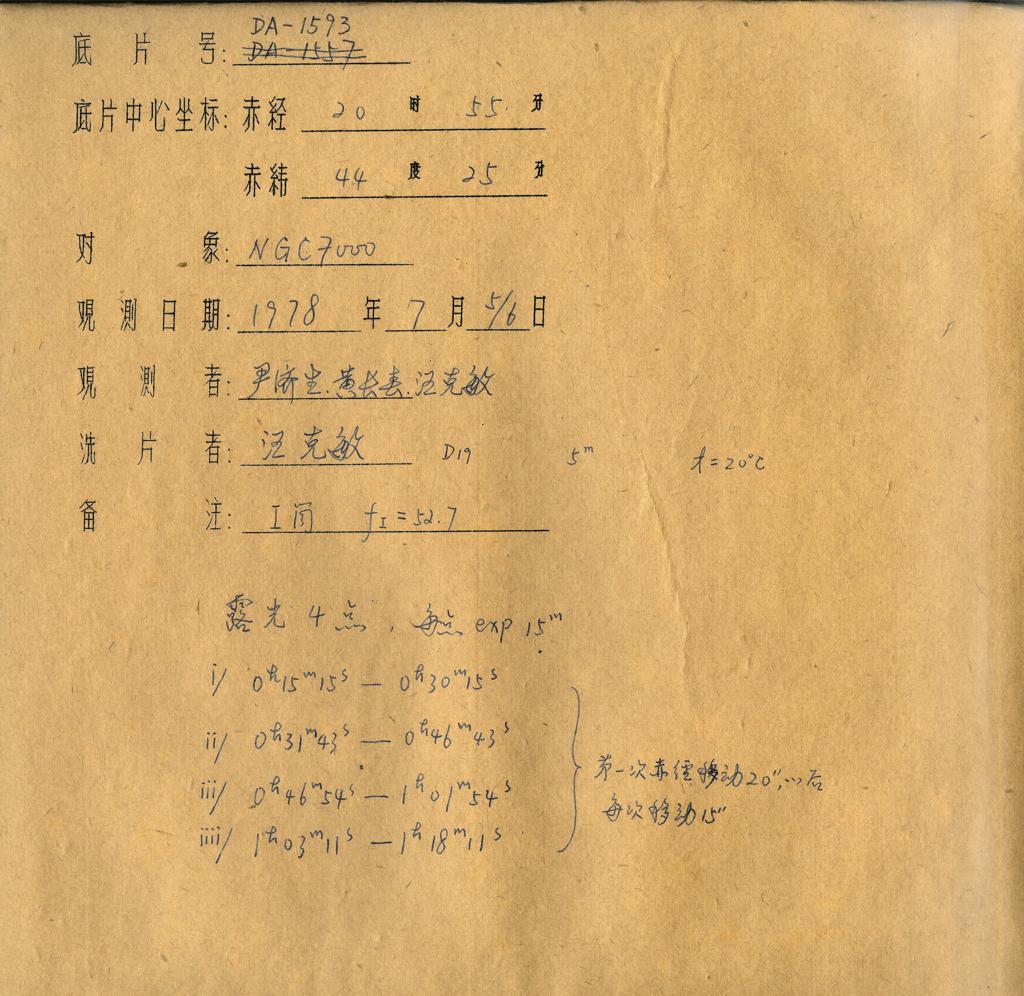 DA-1593
底片号: DA-1557
底片中心坐标: 赤经 20 时 55 分
赤纬 44 度 25 分
对象: NGC7000
观测日期: 1978 年 7 月 5/6 日
观测者: 尹济生.黄长春.汪克敏
洗片者: 汪克敏 D19 5m t=20°C
备注: I 筒 fI=52.7
露光 4 点, 每点 exp 15m
i/ 0h15m15s — 0h30m15s
ii/ 0h31m43s — 0h46m43s
iii/ 0h46m54s — 1h01m54s
iiii/ 1h03m11s — 1h18m11s
第一次赤经移动20", 以后
每次移动15"